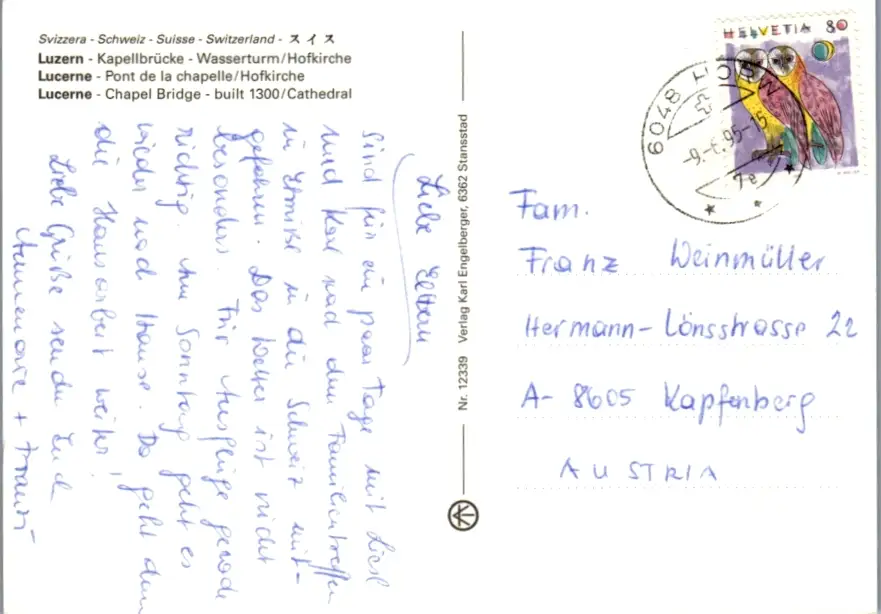 Svizzera - Schweiz - Suisse - Switzerland - スイス
Luzern - Kapellbrücke - Wasserturm/Hofkirche
Lucerne - Pont de la chapelle/Hofkirche
Lucerne - Chapel Bridge - built 1300/Cathedral
Liebe Eltern
Sind für ein paar Tage mit Liesl
und Karl nach dem Familientreffen
in die Schweiz mit-
gefahren. Das Wetter ist nicht
besonders. Für Ausflüge gerade
richtig. Am Sonntag geht es
wieder nach Hause. Da geht dann
die Hausarbeit weiter!
Liebe Grüße senden Euch
Annemarie + Franz
Nr. 12339 Verlag Karl Engelberger, 6362 Stansstad
HELVETIA 80
6048 HORW
-9.-6.95-15
Fam.
Franz Weinmüller
Hermann-Lönsstrasse 22
A- 8605 Kapfenberg
AUSTRIA